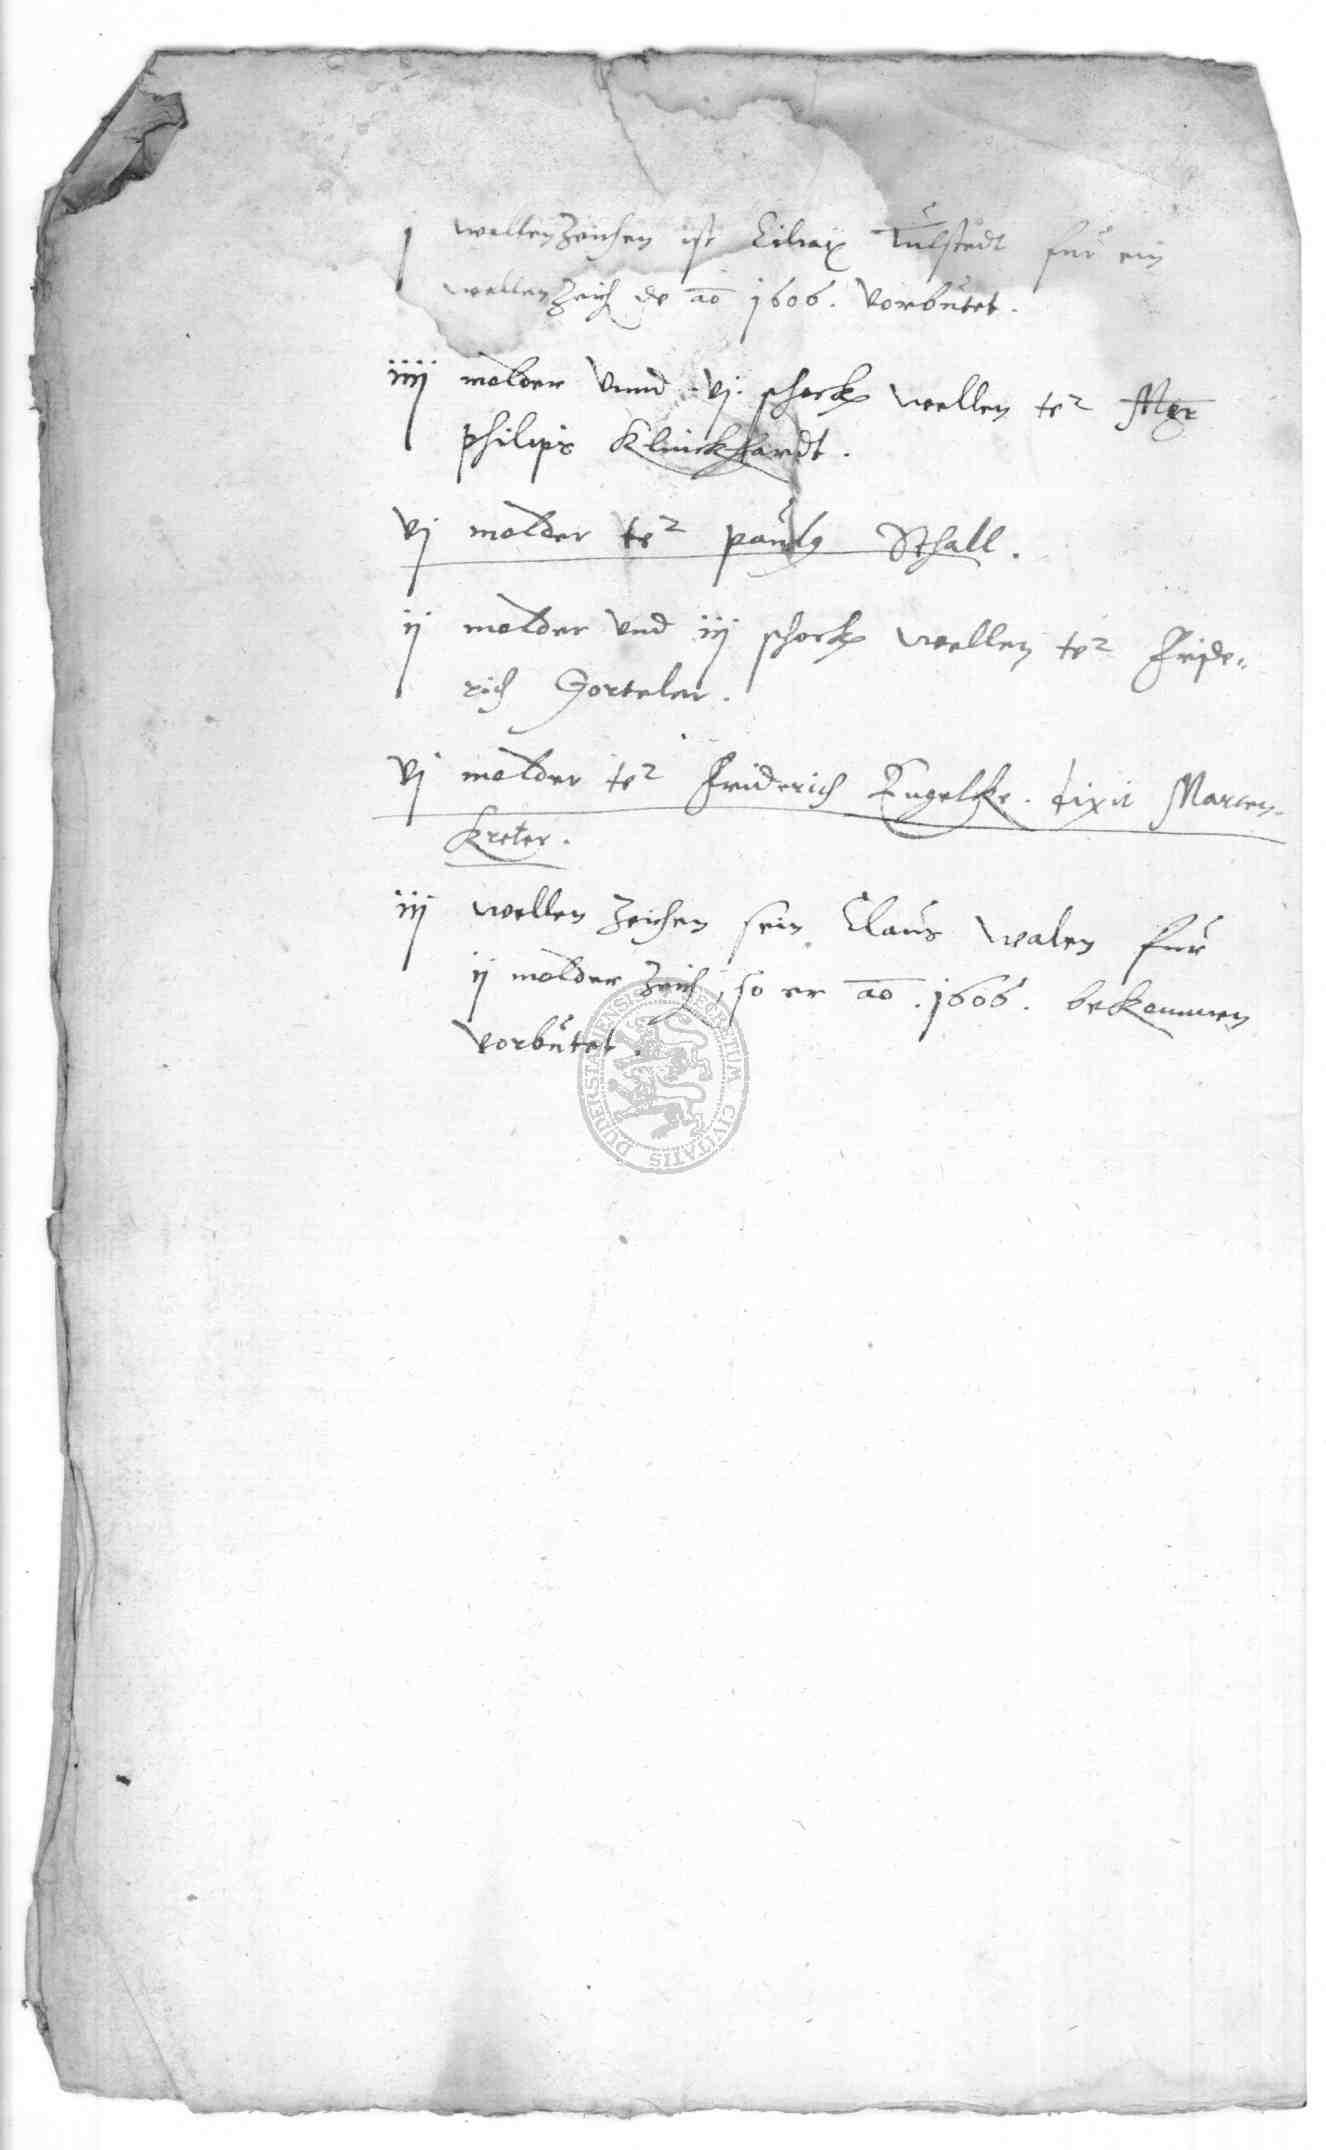 j wellenzeichen ist Ciliax Tulstedt fur ein
wellenzeich de ao 1606. vorbutet.
iiij molder vnnd vj. schock wellen te2 Mgr
philips Klinckhardt.
vj molder te2 pauly Schall.
ij molder vnd iij schock wellen te2 Fride-
rich Gorteler.
vj molder te2 Friderich Engelke. dixit Marten
Kreter.
iij wellen zeichen sein Claus walen fur
ij molder zeich, so er ao. 1606. bekommen
vorbutet.
DUDERSTATENSIS CIVITATIS